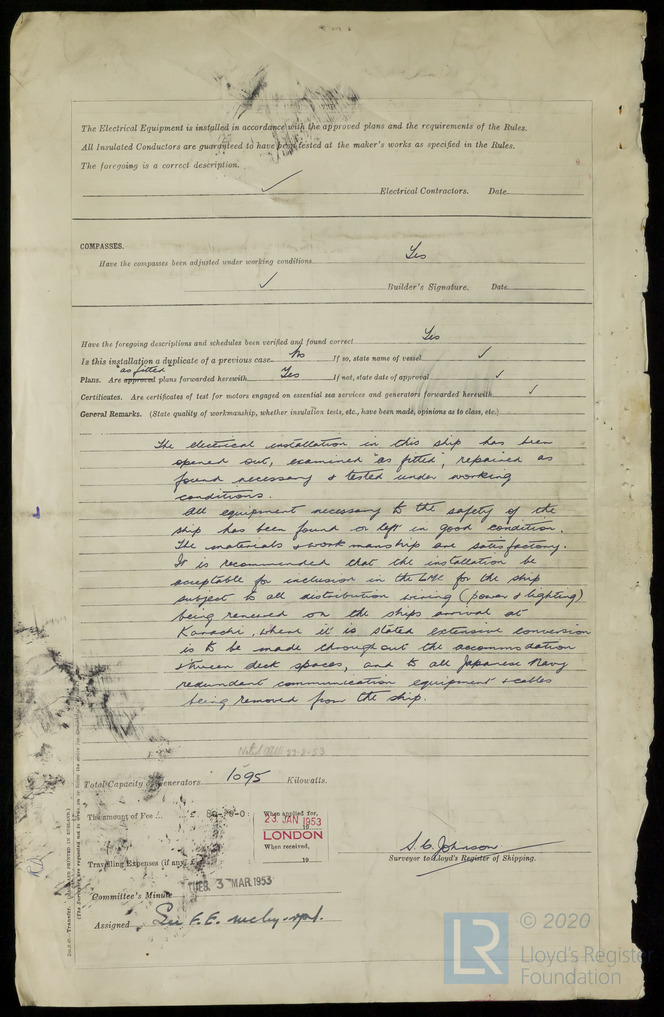 The Electrical Equipment is installed in accordance with the approved plans and the requirements of the Rules.
All Insulated Conductors are guaranteed to have been tested at the maker's works as specified in the Rules.
The foregoing is a correct description.
✓ Electrical Contractors. Date
COMPASSES.
Have the compasses been adjusted under working conditions Yes
✓ Builder's Signature. Date
Have the foregoing descriptions and schedules been verified and found correct Yes
Is this installation a duplicate of a previous case No If so, state name of vessel ✓
"as fitted"
Plans. Are approved plans forwarded herewith Yes If not, state date of approval ✓
Certificates. Are certificates of test for motors engaged on essential sea services and generators forwarded herewith ✓
General Remarks. (State quality of workmanship, whether insulation tests, etc., have been made, opinions as to class, etc.)
The electrical installation in this ship has been
opened out, examined "as fitted", repaired as
found necessary & tested under working
conditions.
All equipment necessary to the safety of the
ship has been found or left in good condition.
The materials & workmanship are satisfactory.
It is recommended that the installation be
acceptable for inclusion in the LMC for the ship
subject to all distribution wiring (power & lighting)
being renewed on the ships arrival at
Karachi, where it is stated extensive conversion
is to be made throughout the accommodation
& tween deck spaces, and to all Japanese Navy
redundant communication equipment & cables
being removed from the ship.
Total Capacity of Generators 1095 Kilowatts.
The amount of Fee £
When applied for,
23 JAN 1953
19
LONDON
When received,
Travelling Expenses (if any) £
19
S.C. Johnson
Surveyor to Lloyd's Register of Shipping.
TUES. 3 MAR 1953
Committee's Minute
Assigned See F.E. mchy. rpt.
Transfer. (MADE AND PRINTED IN ENGLAND.)
© 2020
LR
Lloyd's Register
Foundation